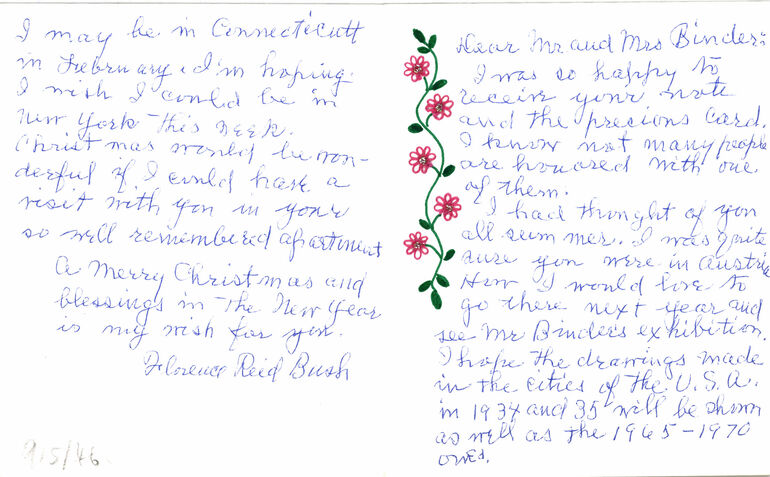 Dear Mr and Mrs Binder:
I was so happy to
receive your note
and the precious card.
I know not many people
are honored with one
of them.
I had thought of you
all summer. I was quite
sure you were in Austria
How I would love to
go there next year and
see Mr Binder's exhibition.
I hope the drawings made
in the cities of the U.S.A.
in 1934 and 35 will be shown
as well as the 1965-1970
ones.
I may be in Connecticutt
in February. I'm hoping.
I wish I could be in
New York this week.
Christmas would be won-
derful if I could have a
visit with you in your
so well remembered apartment
A Merry Christmas and
blessings in the New Year
is my wish for you.
Florence Reid Bush